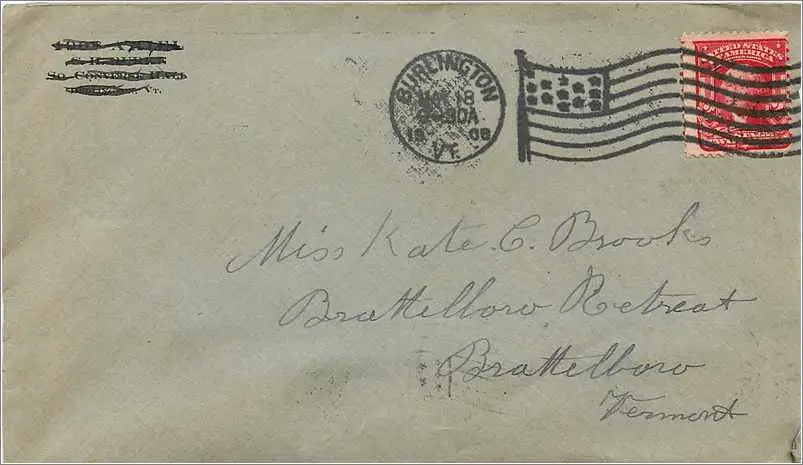 So. CONVERSE HALL
VT.
BURLINGTON
18
30A
19 08
VT.
UNITED STATES
OF AMERICA
Miss Kate. C. Brooks
Brattelboro Retreat
Brattelboro
Vermont